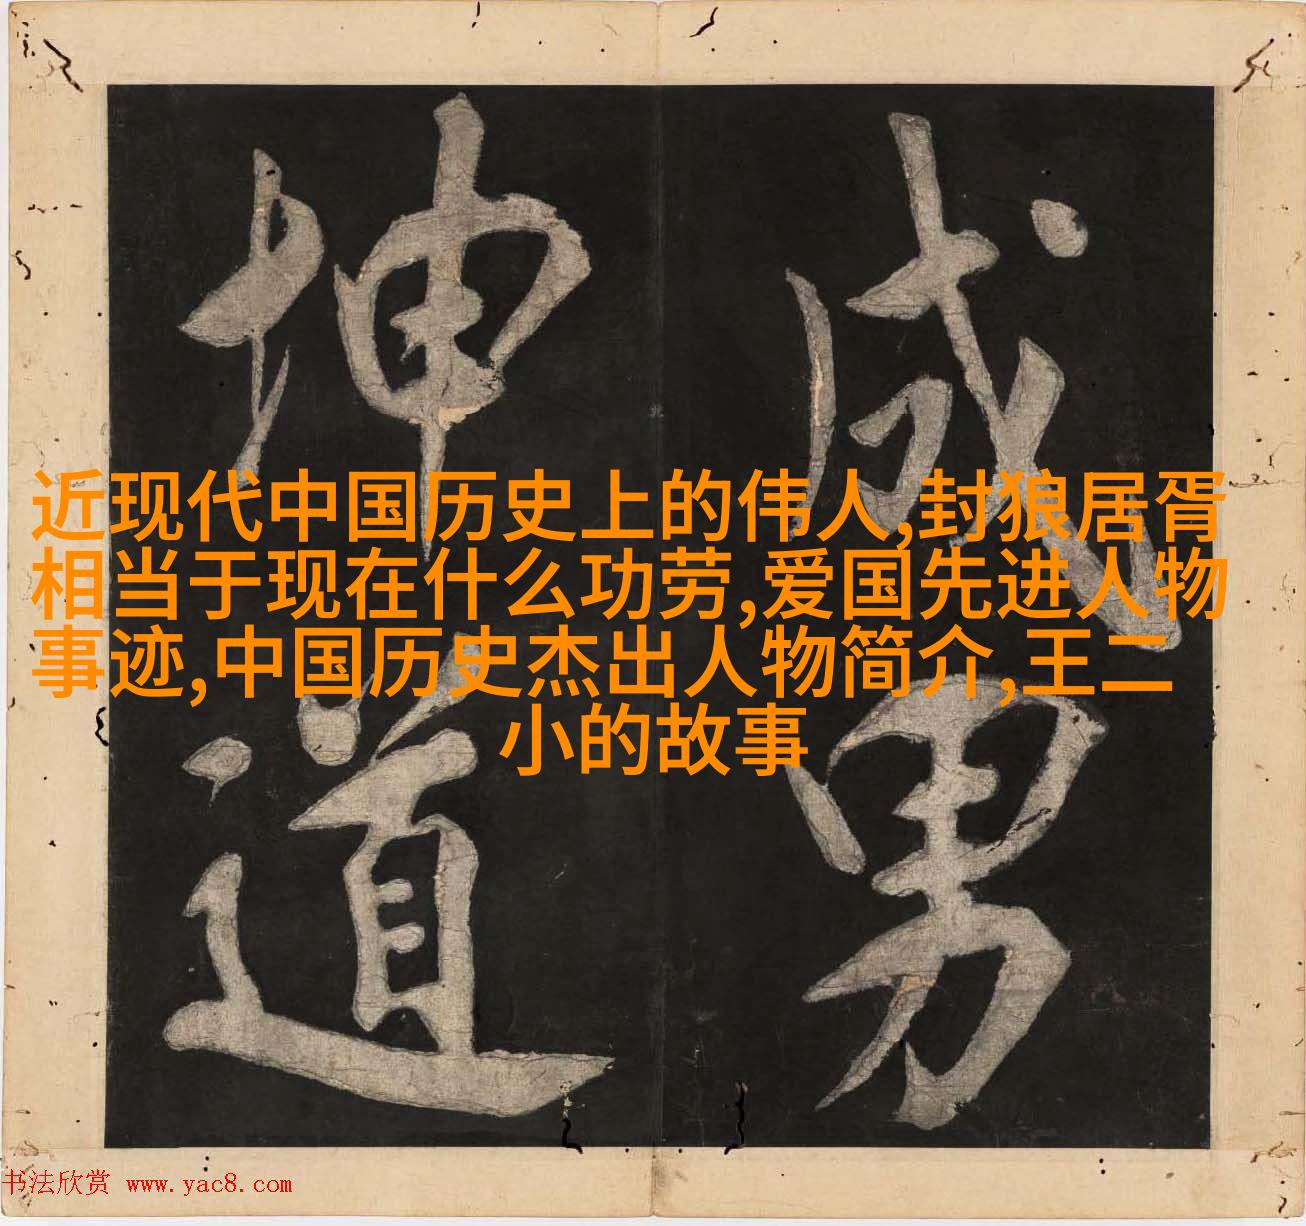 成男
坤道
近现代中国历史上的伟人,封狼居胥
相当于现在什么功劳,爱国先进人物
事迹,中国历史杰出人物简介,王二
小的故事
书法欣赏 www.yac8.com